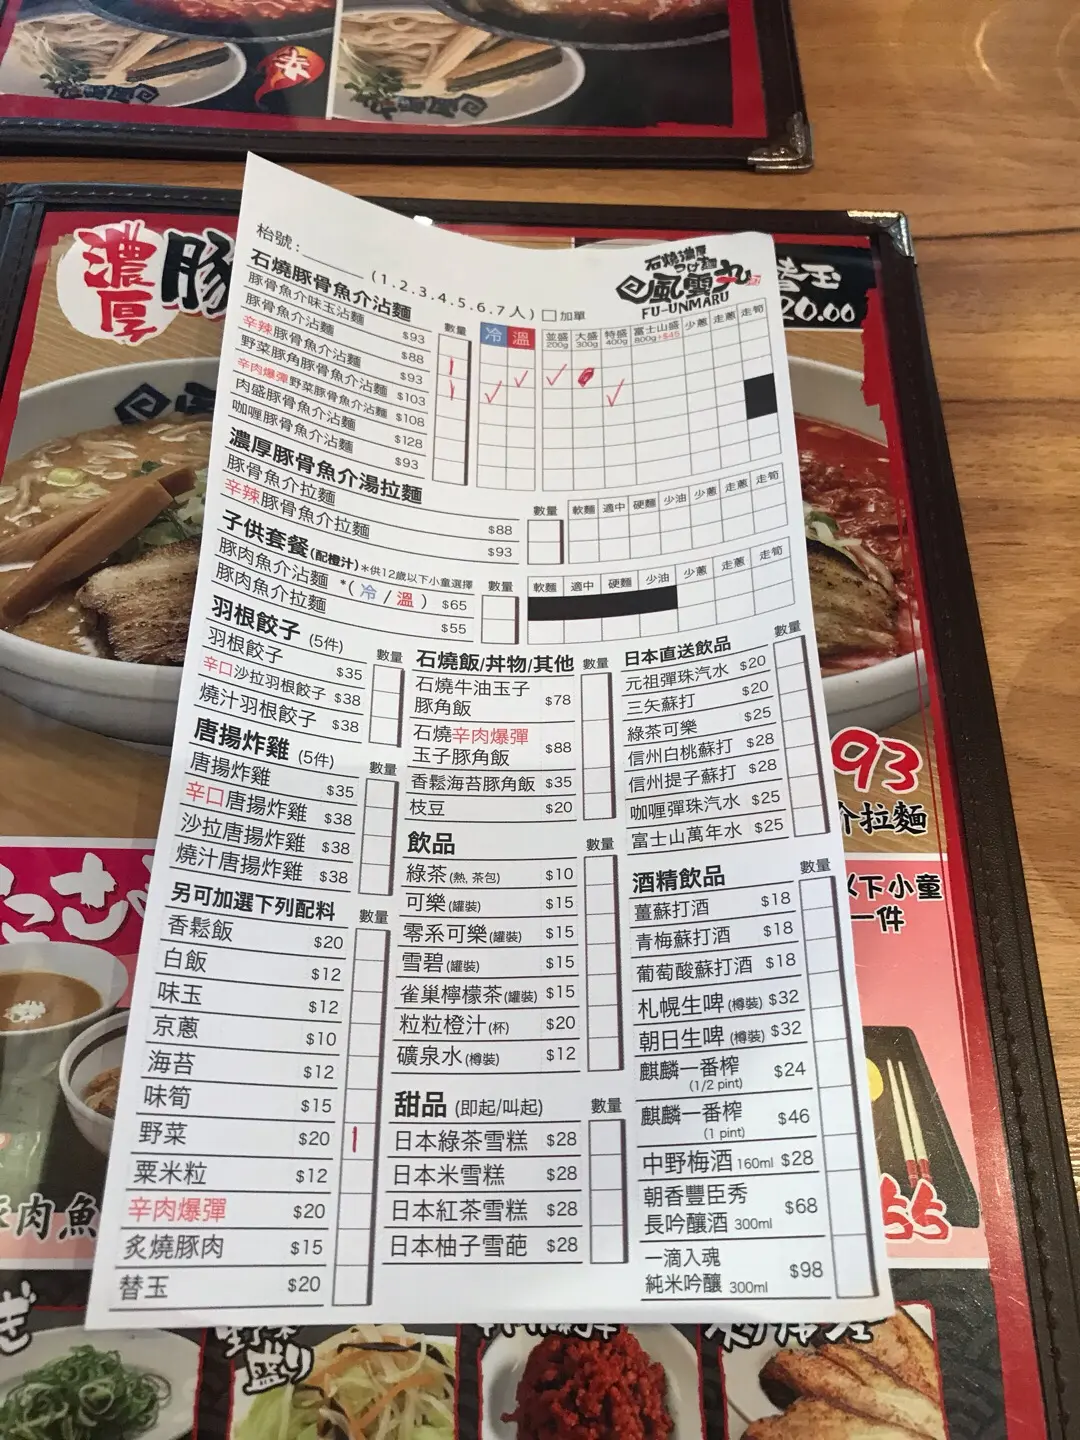 赤
濃厚
豚
替玉
20.00
枱號：______ (1.2.3.4.5.6.7人) □加單
石燒濃厚
つけ麺
風雲丸
FU-UNMARU
石燒豚骨魚介沾麵 數量 冷 溫 並盛200g 大盛300g 特盛400g 富士山盛800g+$45 少蔥 走蔥 走筍
豚骨魚介味玉沾麵 $93
豚骨魚介沾麵 $88
辛辣豚骨魚介沾麵 $93
野菜豚角豚骨魚介沾麵 $103
辛肉爆彈野菜豚骨魚介沾麵 $108
肉盛豚骨魚介沾麵 $128
咖喱豚骨魚介沾麵 $93
濃厚豚骨魚介湯拉麵 數量 軟麵 適中 硬麵 少油 少蔥 走蔥 走筍
豚骨魚介拉麵 $88
辛辣豚骨魚介拉麵 $93
子供套餐(配橙汁)*供12歲以下小童選擇 數量 軟麵 適中 硬麵 少油 少蔥 走蔥 走筍
豚肉魚介沾麵 *(冷/溫) $65
豚肉魚介拉麵 $55
羽根餃子 (5件) 數量
羽根餃子 $35
辛口沙拉羽根餃子 $38
燒汁羽根餃子 $38
唐揚炸雞 (5件) 數量
唐揚炸雞 $35
辛口唐揚炸雞 $38
沙拉唐揚炸雞 $38
燒汁唐揚炸雞 $38
另可加選下列配料 數量
香鬆飯 $20
白飯 $12
味玉 $12
京蔥 $10
海苔 $12
味筍 $15
野菜 $20 1
粟米粒 $12
辛肉爆彈 $20
炙燒豚肉 $15
替玉 $20
石燒飯/丼物/其他 數量
石燒牛油玉子
豚角飯 $78
石燒辛肉爆彈
玉子豚角飯 $88
香鬆海苔豚角飯 $35
枝豆 $20
飲品 數量
綠茶(熱, 茶包) $10
可樂(罐裝) $15
零系可樂(罐裝) $15
雪碧(罐裝) $15
雀巢檸檬茶(罐裝) $15
粒粒橙汁(杯) $20
礦泉水(樽裝) $12
甜品 (即起/叫起) 數量
日本綠茶雪糕 $28
日本米雪糕 $28
日本紅茶雪糕 $28
日本柚子雪葩 $28
日本直送飲品 數量
元祖彈珠汽水 $20
三矢蘇打 $20
綠茶可樂 $25
信州白桃蘇打 $28
信州提子蘇打 $28
咖喱彈珠汽水 $25
富士山萬年水 $25
酒精飲品 數量
薑蘇打酒 $18
青梅蘇打酒 $18
葡萄酸蘇打酒 $18
札幌生啤(樽裝) $32
朝日生啤(樽裝) $32
麒麟一番榨
(1/2 pint) $24
麒麟一番榨
(1 pint) $46
中野梅酒 160ml $28
朝香豐臣秀
長吟釀酒 300ml $68
一滴入魂
純米吟釀 300ml $98
93
介拉麵
以下小童
一件
肉魚
55
野菜
盛り